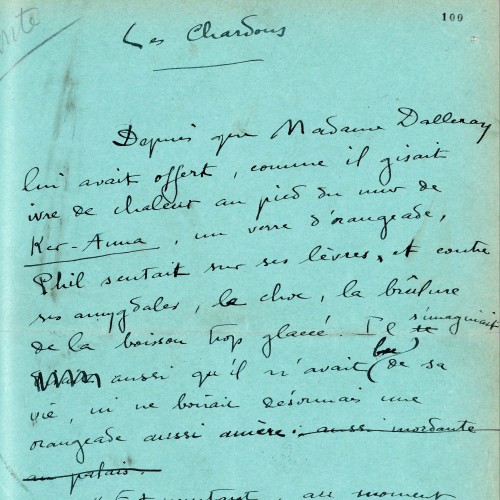 100
Les Chardons
Depuis que Madame Dalleray
lui avait offert, comme il gisait
ivre de chaleur au pied du mur de
Ker-Anna, un verre d'orangeade,
Phil sentait sur ses lèvres, et contre
ses amygdales, le choc, la brûlure
de la boisson trop glacée. Il s'imaginait
aussi qu'il n'avait bu de sa
vie, ni ne boirait désormais une
orangeade aussi amère. aussi mordante
au palais.
Et pourtant, au moment